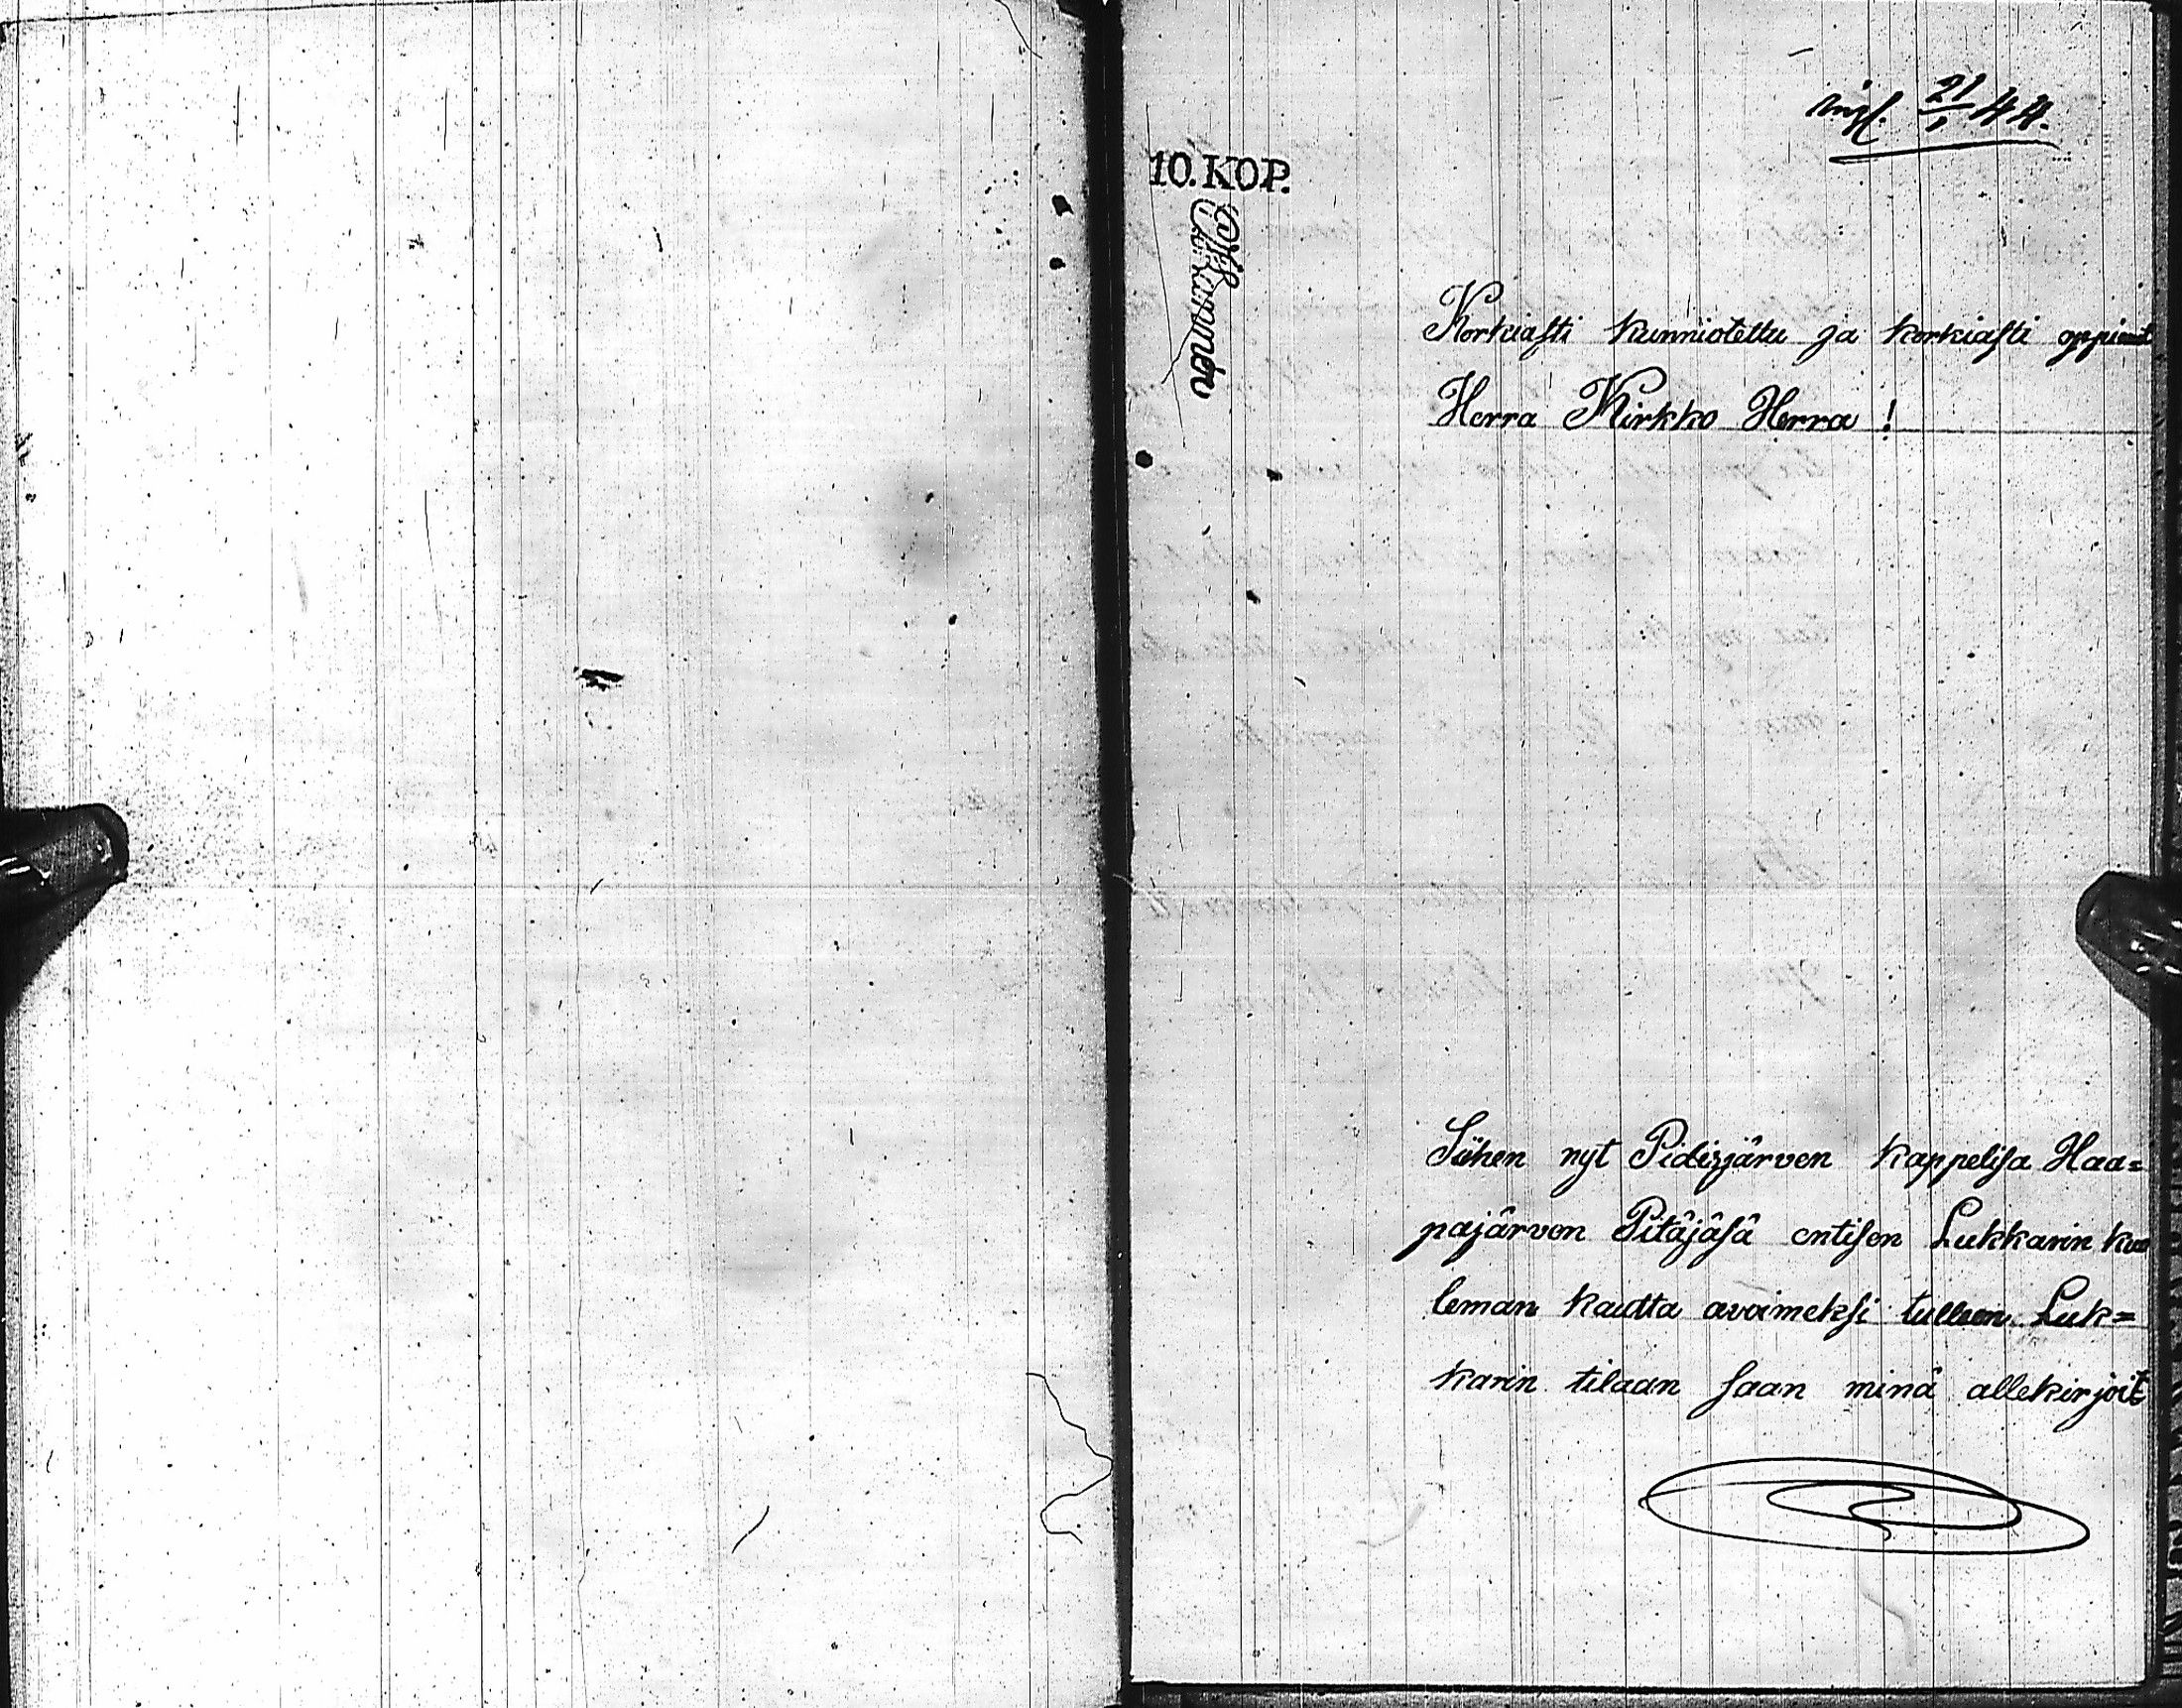 ingf. 21/1 44.
10. KOP.
Korkiasti kunniotettu ja korkiasti oppinut
Herra Kirkko Herra !
Siihen nyt Pidisjärven kappelisa Haa=
pajärven Pitäjäsä entisen Lukkarin kuo
leman kautta avoimeksi tulleen Luk=
karin tilaan saan minä allekirjoit